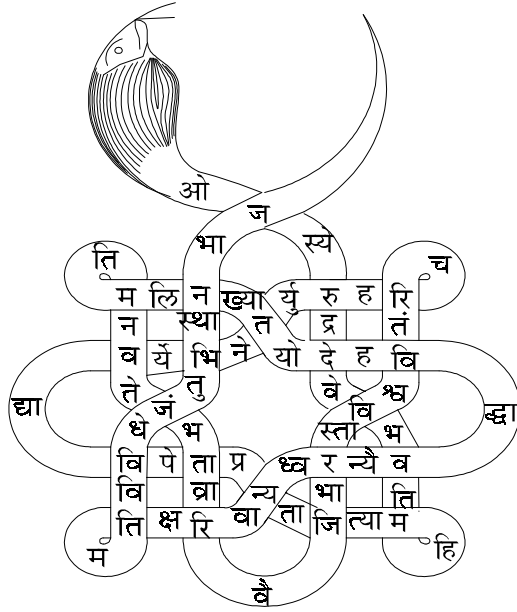 ओ
ज
भा स्ये
ति च
म लि न ख्या र्यु रु ह रि
न स्था त द्र तं
व र्ये भि ने यो दे ह वि
ते तु वे श्व
द्या जं वि द्धा
धे भ स्ता भ
वि पे ता प्र ध्व र न्यै व
वि व्रा न्य भा ति
ति क्ष रि वा ता जि त्या म
म हि
वै